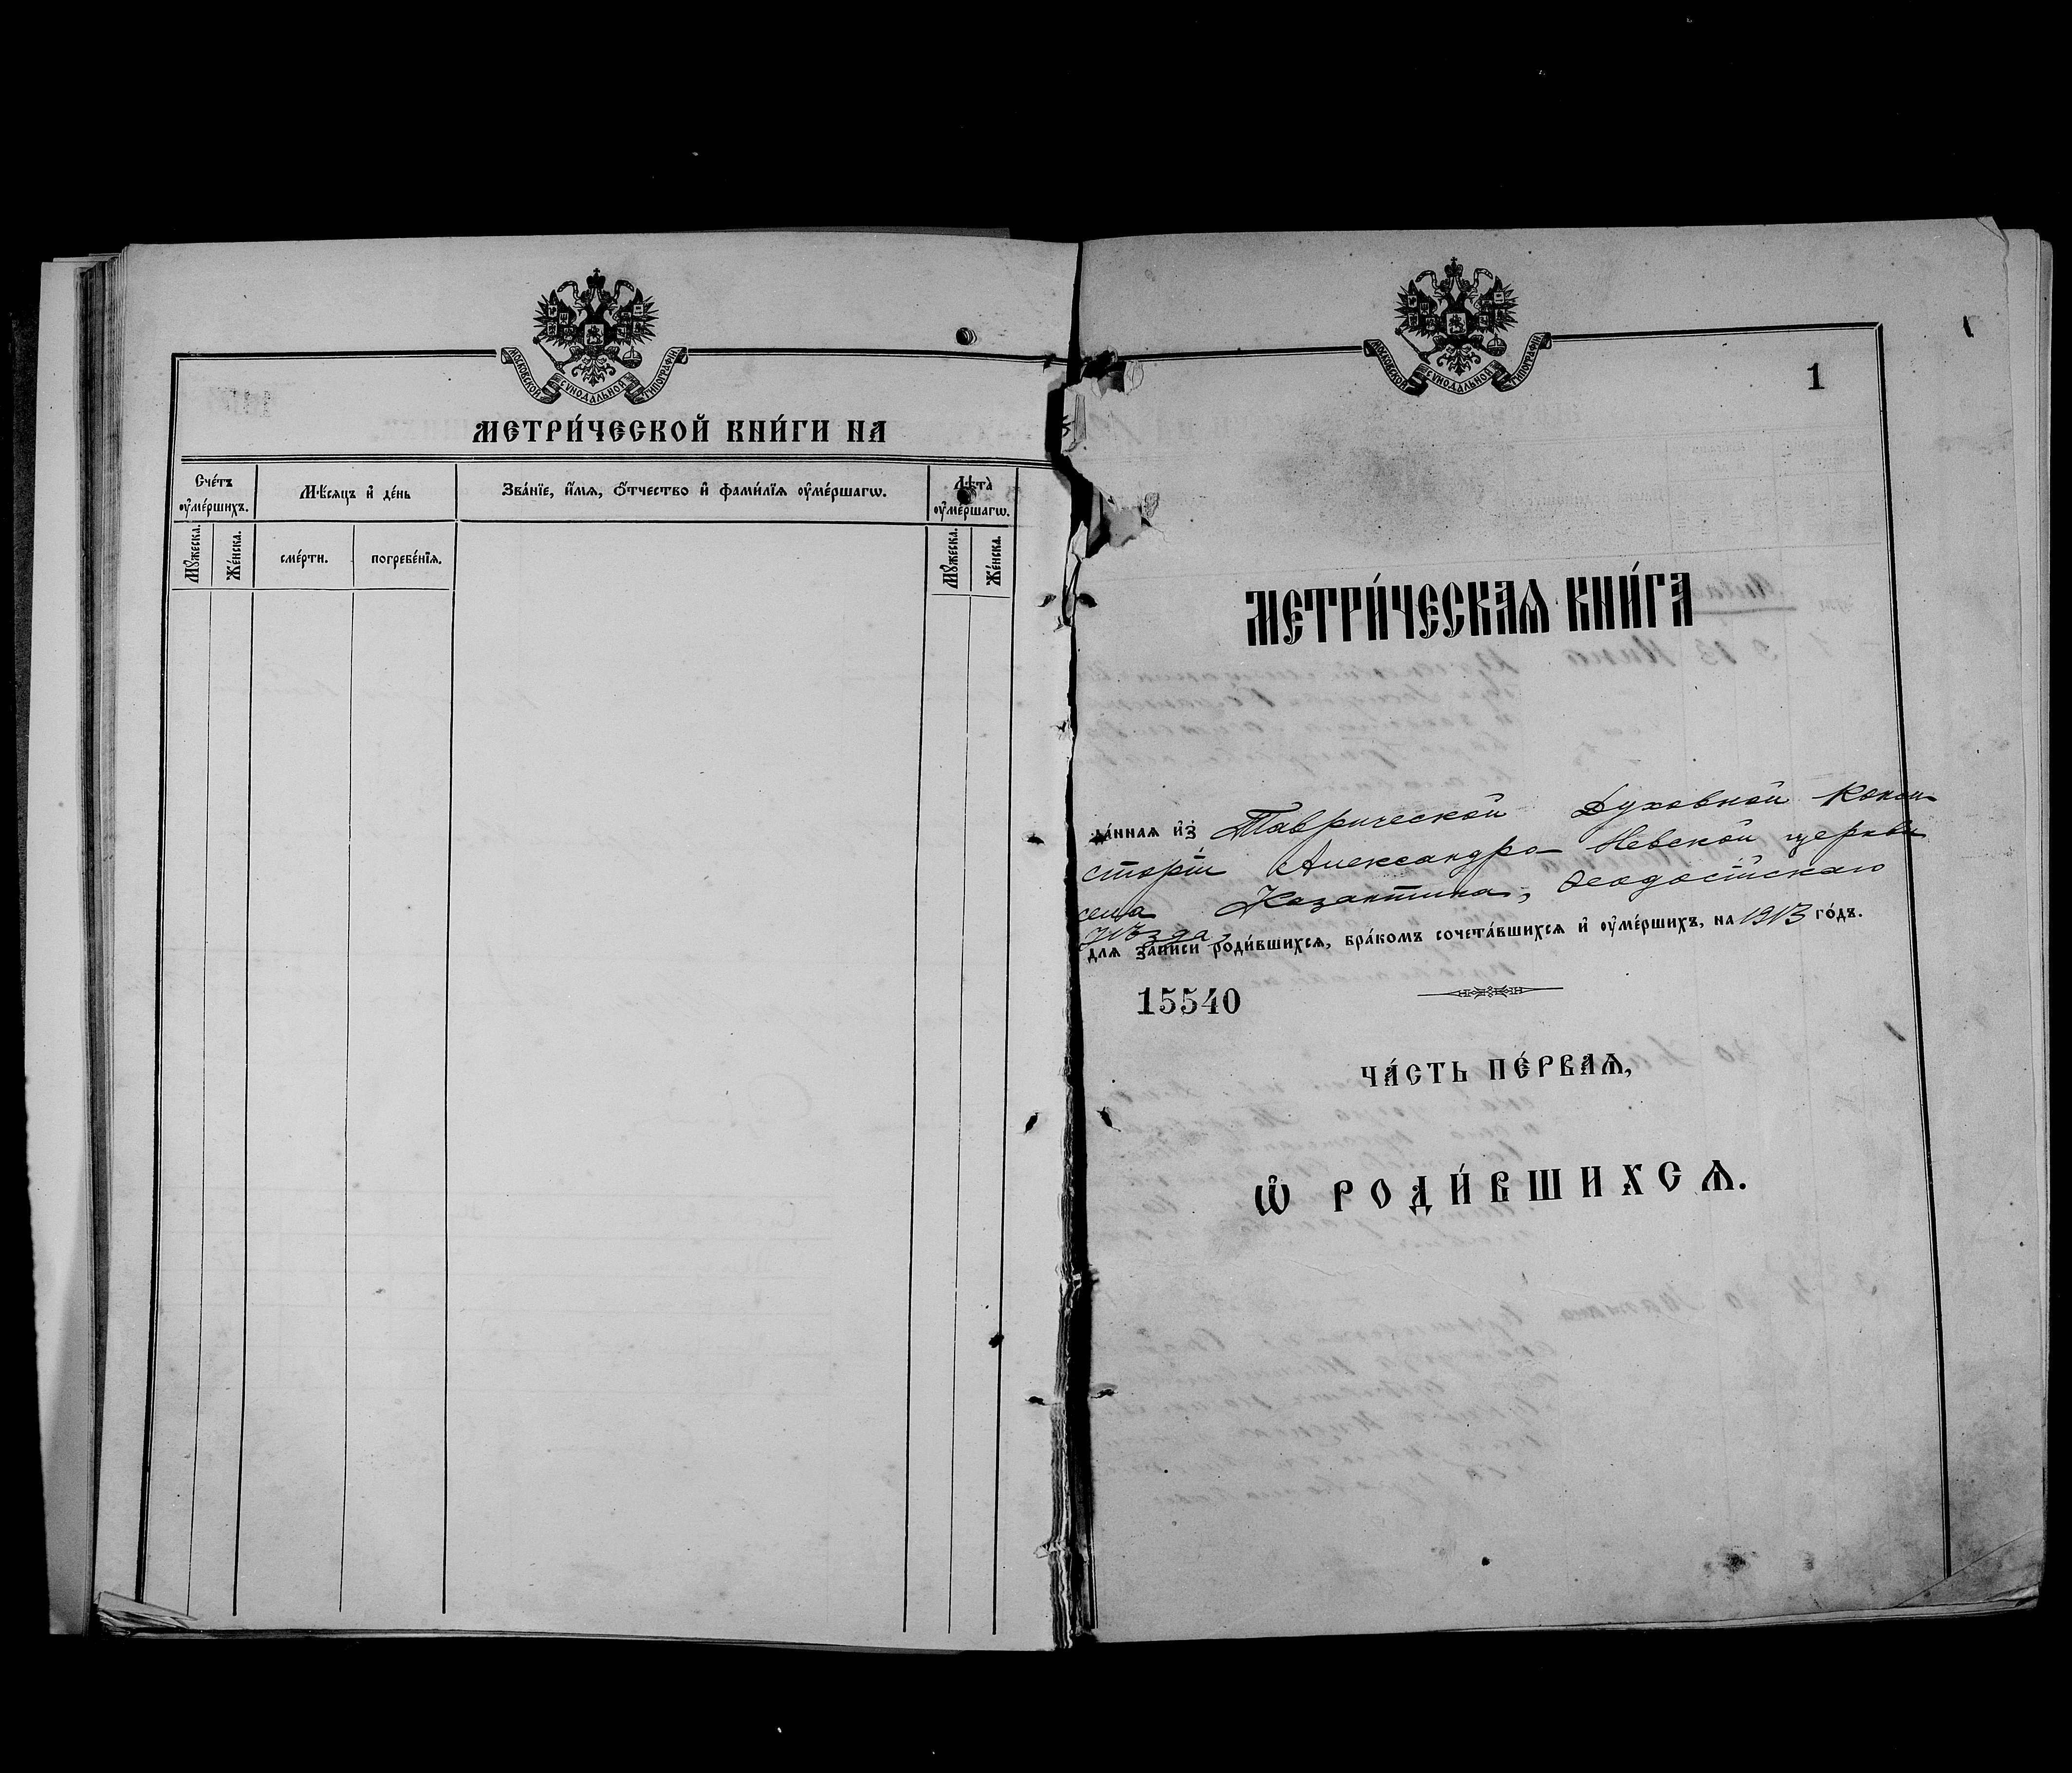 МОСКОВСКОЙ СѴНОДАЛЬНОЙ ТИПОГРАФІИ
МЕТРИ́ЧЕСКОЙ КНИ́ГИ НА
Сче́тъ ᲂу҆ме́ршихъ.
Мѣ́сяцъ и҆ де́нь
Зва́нїе, и҆́мѧ, ѻ҆́тчество и҆ фами́лїѧ ᲂу҆ме́ршагѡ.
Лѣ́та ᲂу҆ме́ршагѡ.
Мꙋ́жеска.
Же́нска.
сме́рти.
погребе́нїѧ.
Мꙋ́жеска.
Же́нска.
МОСКОВСКОЙ СѴНОДАЛЬНОЙ ТИПОГРАФІИ
1
МЕТРИ́ЧЕСКАѦ КНИ́ГА
да́ннаѧ и҆з̾ Таврической Духовной Конси-
сторіи Александро-Невской церкви
села Казантипа, Ѳеодосійскаго
уѣзда,
для за́писи роди́вшихсѧ, бра́комъ сочета́вшихсѧ и҆ ᲂу҆ме́ршихъ, на 1913 го́дъ.
15540
ЧА́СТЬ ПЕ́РВАѦ,
Ѽ РОДИ́ВШИХСѦ.